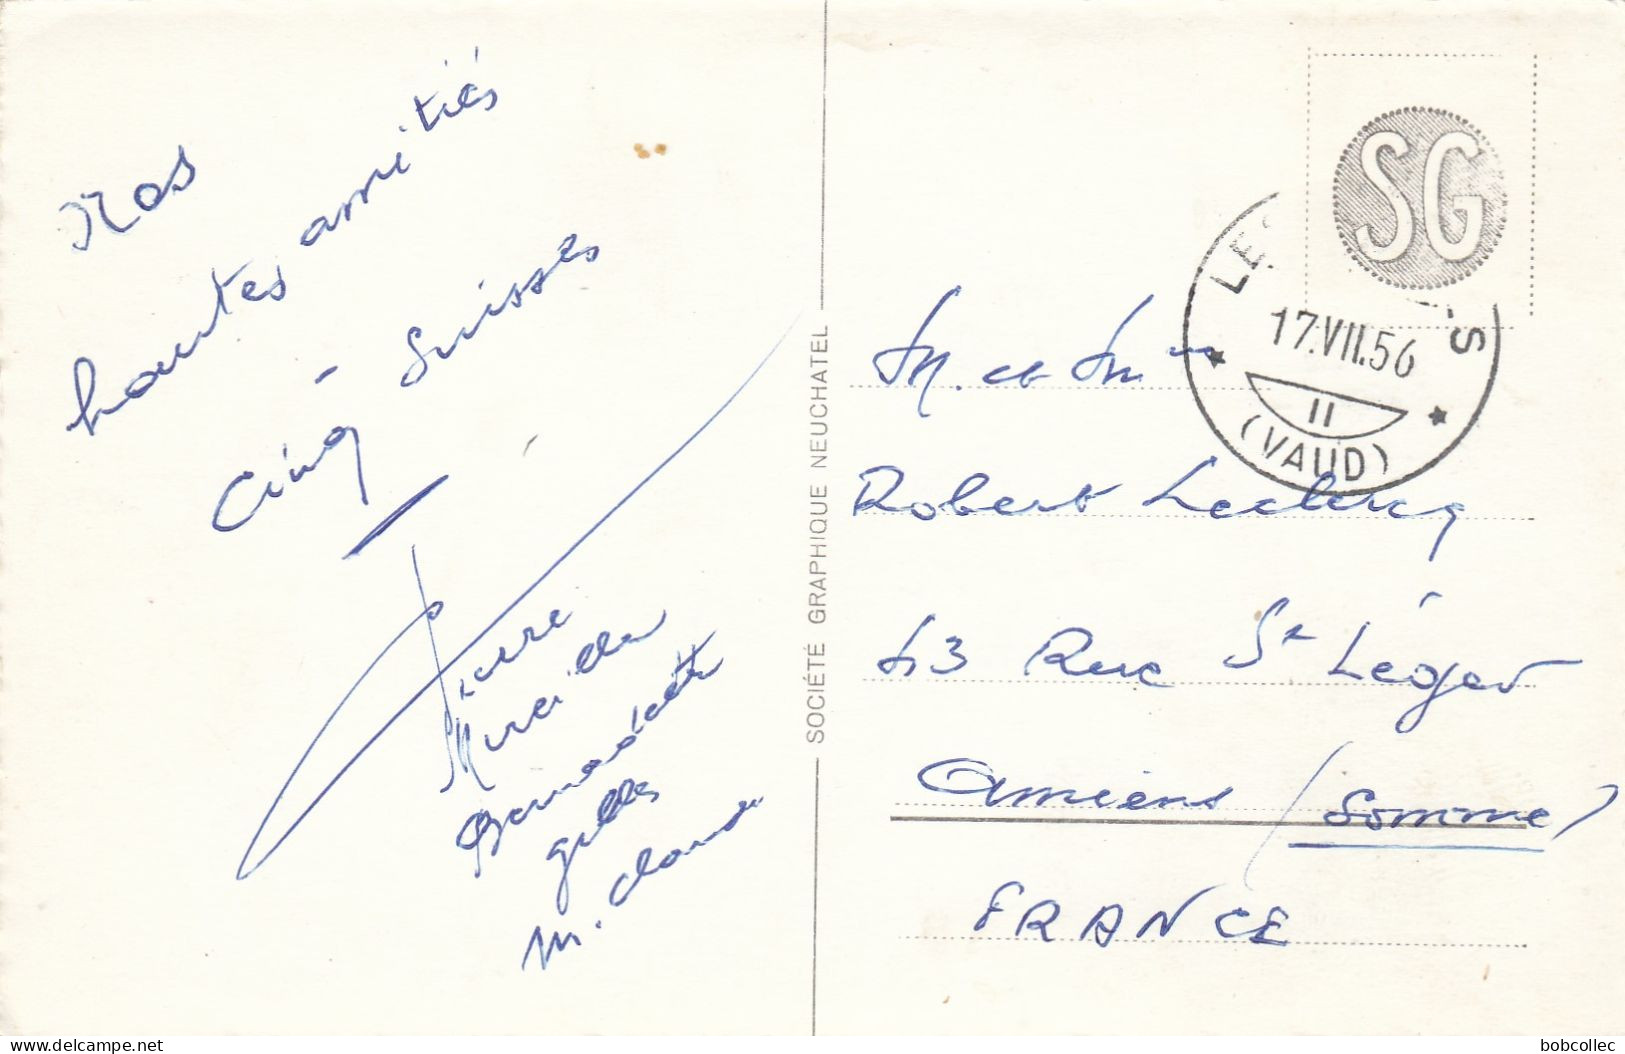 Nos
hautes amitiés
Cinq Suisses
Pierre
Bernadette
gilles
M. claude
SOCIÉTÉ GRAPHIQUE NEUCHATEL
SG
LES
17.VII.56
II
(VAUD)
M. et Mme
Robert Leclercq
43 Rue St Léger
Amiens (Somme)
FRANCE
bobcollec